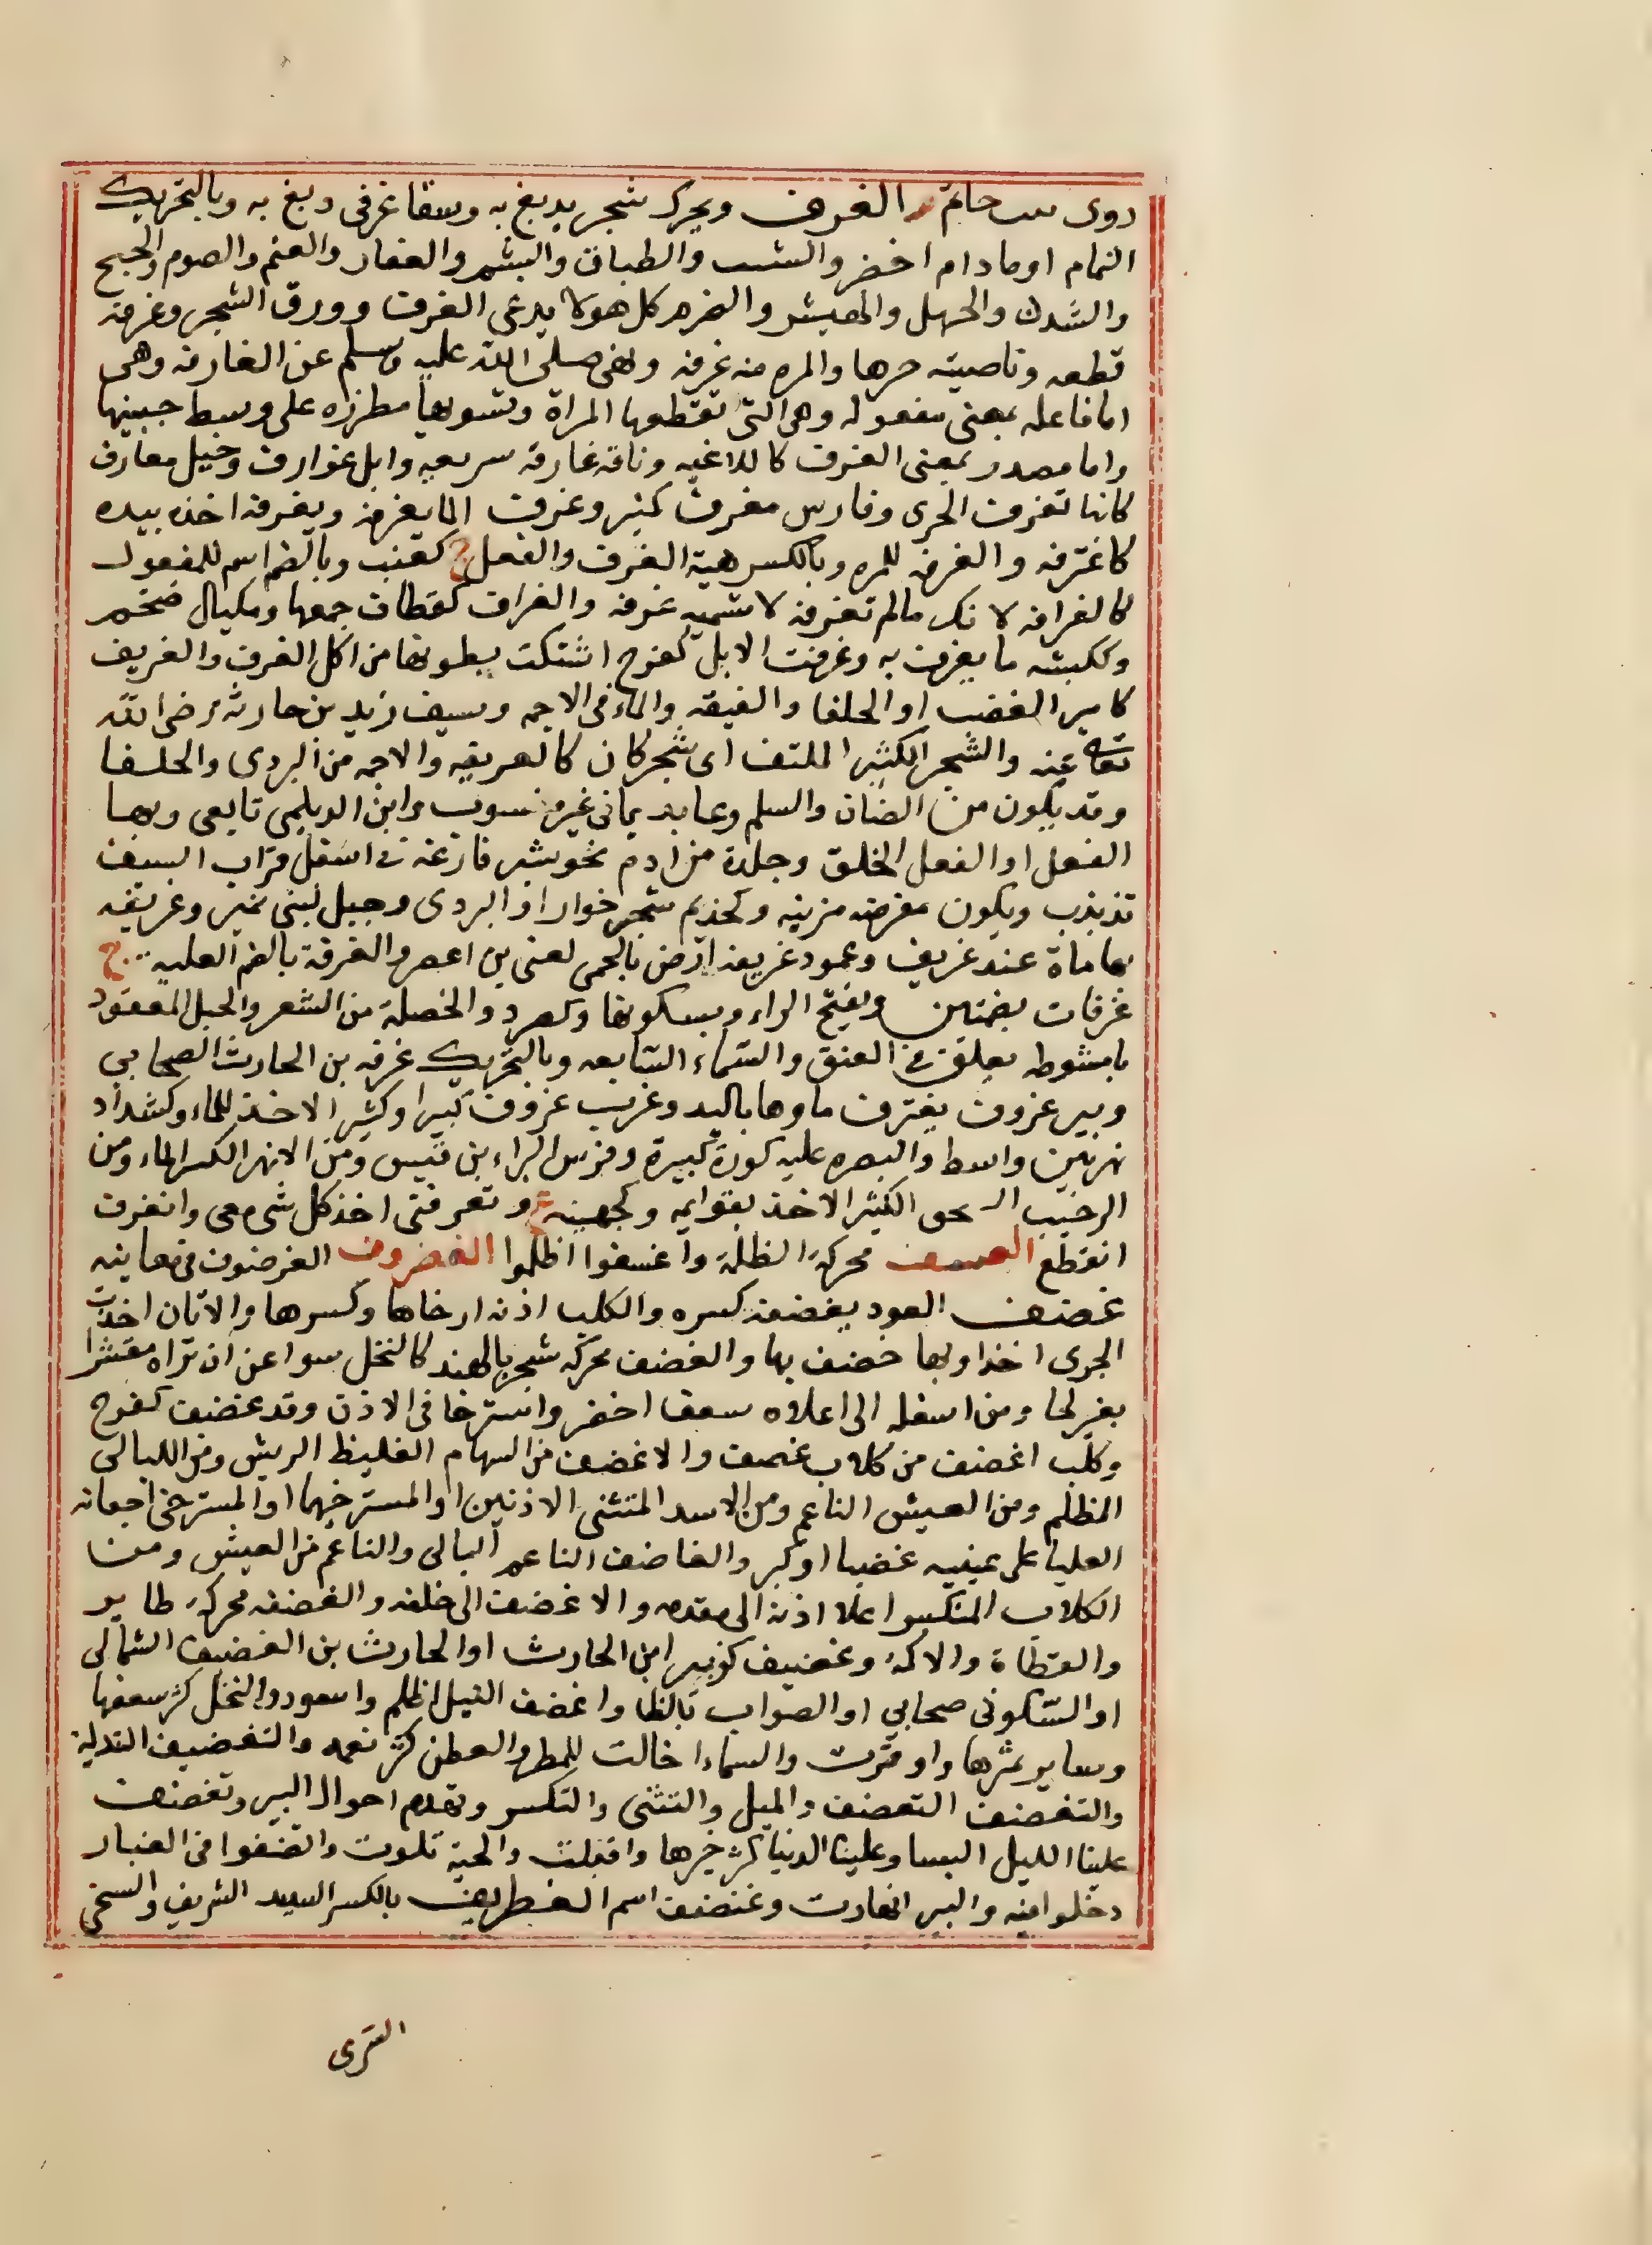 دوى س حاتم الغرف ويحرك شجر يدبغ به وسقا غرفى دبغ به وبالتحريك
الثمام او مادام اخضر والشث والطباق والبشم والعفار والعتم والصوم والحبج
والشدن والحيهل والهيشر والضرم كل هولا يدعى الغرف وورق الشجر وغرفه
قطعه وناصيته جزها والمره منه غرفه ونهى صلى الله عليه وسلم عن الغارفه وهى
اما فاعله بمعنى مفعوله وهى التى تقطعها المراة وتسويها مطرزه على وسط جبينها
واما مصدر بمعنى الغرف كاللاغيه وناقه غارفه سريعه وابل غوارف وخيل مغارف
كانها تغرف الجرى وفارس مغرف كمنبر وغرف الما يغرفه ويغرفه اخذه بيده
كاغترفه والغرفه للمره وبالكسر هيئة الغرف والنعل ج كعنب وبالضم اسم للمفعول
كالغرافه لانك مالم تغرفه لا تسميه غرفه والغراف كنطاف جمعها ومكيال ضخم
وكمكنسه ما يغرف به وغرفت الابل كفرح اشتكت بطونها من اكل الغرف والغريف
كامير القصب او الحلفا والغيقه والماء فى الاجمه وسيف زيد بن حارثه رضى الله
تعالى عنه والشجر الكثير الملتف اى شجر كان كالغريفه والاجمه من البردى والحلفا
وقد يكون من الضان والسلم وعابد يمانى غير منسوب وابن الديلمى تابعى وبها
النعل او النعل الخلق وجلدة من ادم نحو شبر فارغة فى اسفل قراب السيف
تذبذب ويكون مفرضه مزينه وكحذيم شجر خوار او البردى وجبل لبنى نمير وغريفه
بها ماة عند غريف وعمود غريفه ارض بالحمى لغنى بن اعصر والغرفة بالضم العليه ج
غرفات بضمتين وبفتح الراء وبسكونها وكصرد والخصلة من الشعر والحبل المعقود
بانشوطه يعلق فى العنق والسماء السابعه وبالتحريك غرفه بن الحارث الصحابى
وبير غروف يغترف ماوها باليد وغرب غروف كبيرا وكثير الاخذ للماء وكشداد
نهر بين واسط والبصره عليه كورة كبيرة وفرس البراء بن قيس ومن الانهر الكسر الماء ومن
الرحيب ال حو الكثير الاخذ بقوايمه وكجهينه ع وتغرفنى اخذ كل شى معى وانغرف
انقطع الغسف محركة الظلمة واغسفوا اظلموا الغضروف الغرضوف فى معانيه
غضف العود يغضفه كسره والكلب اذنه ارخاها وكسرها والاتان اخذت
الجرى اخذا وبها خضف بها والغضف محركه شجر بالهند كالنخل سوا عن ان تراه مقشرا
بغير لحا ومن اسفله الى اعلاه سعف اخضر واسترخا فى الاذن وقد غضف كفرح
وكلب اغضف من كلاب غضف والاغضف من السهام الغليظ الريش ومن الليالى
المظلم ومن العيش الناعم ومن الاسد المتثنى الاذنين او المسترخيهما او المسترخى اجفانه
العليا على عينيه غضبا او كبر والغاضف الناعم البالى والناعم من العيش ومن
الكلاب المنكسر اعلا اذنه الى مقدمه والاغضف الى خلفه والغضفه محركة طاير
والقطاة والاكمة وغضيف كزبير ابن الحارث او الحارث بن الغضيف الثمالى
او السكونى صحابى او الصواب بالظا واغضف الليل اظلم واسود والنخل كثر سعفها
وساير ثمرها واوقرت والسماء اخالت للمطر والعطن كثر نعمه والتغضيف التدلية
والتغضف التغضف والميل والتثنى والتكسر وتهدم احوال البير وتغضف
علينا الليل البسا وعلينا الدنيا كثر خيرها واقبلت والحية تلوت وانغضفوا فى الغبار
دخلوا فيه والبير انهارت وغنضف اسم الغطريف بالكسر السيد الشريف والسخى
السرى